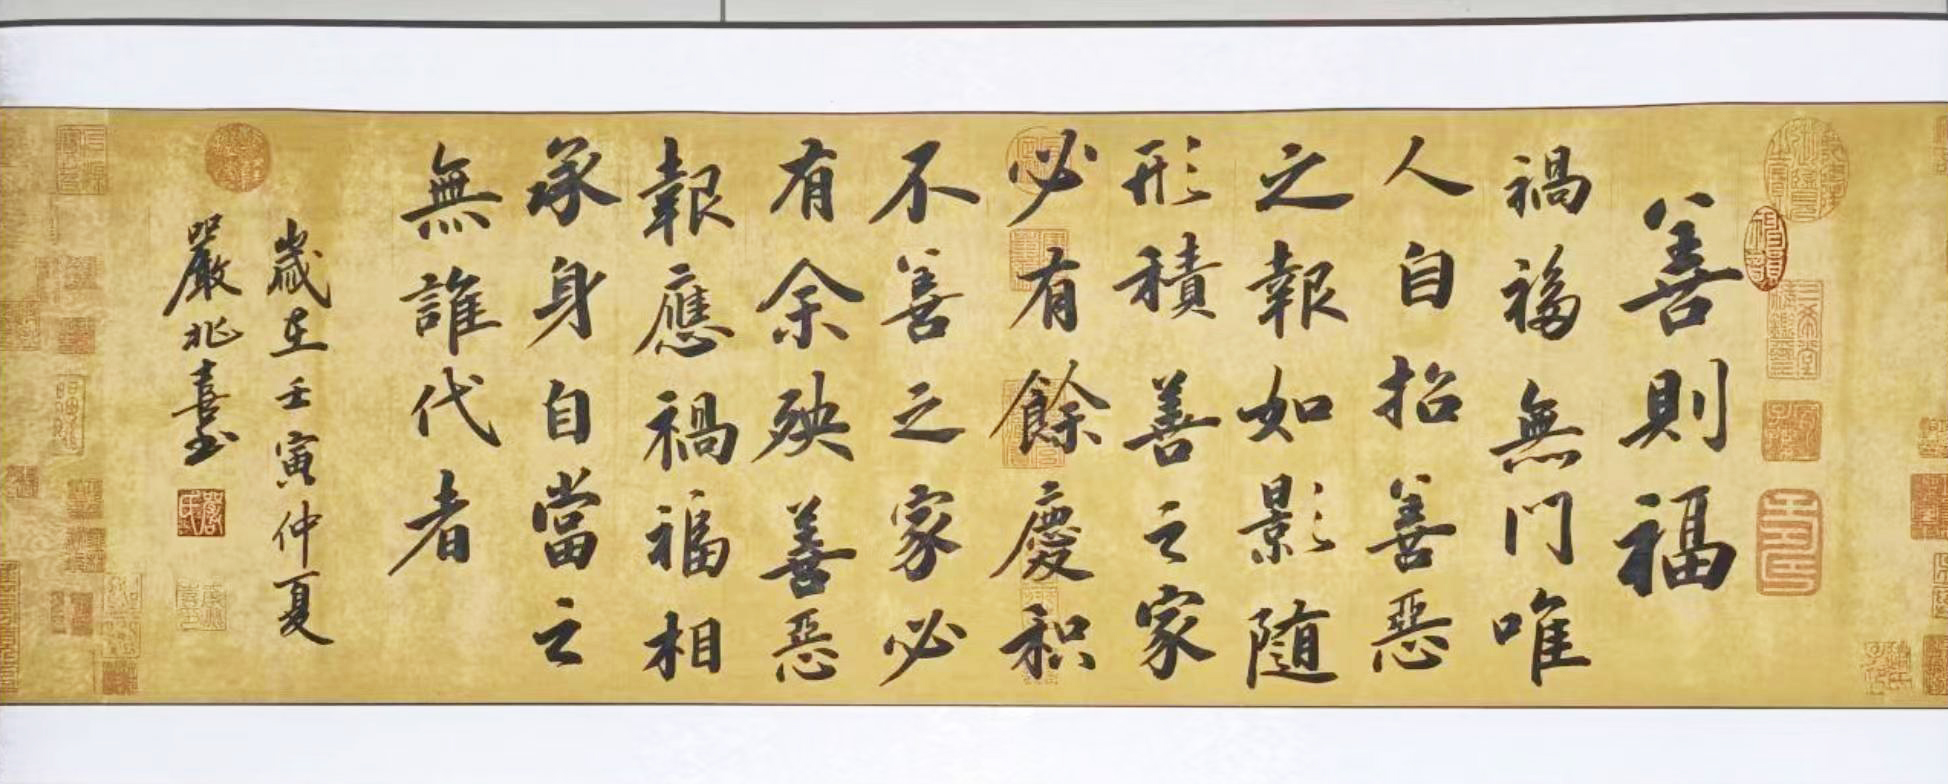 善則福
禍福無門唯
人自招善惡
之報如影随
形積善之家
必有餘慶积
不善之家必
有余殃善惡
報應禍福相
承身自當之
無誰代者
歲在壬寅仲夏
嚴兆喜書